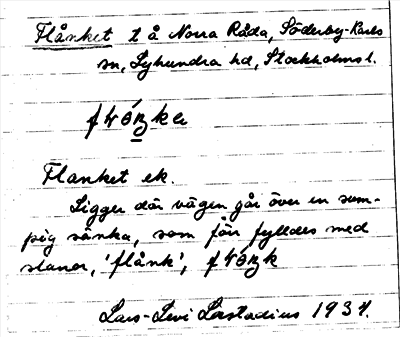 Flånket t å Norra Råda, Söderby-Karls
sn, Lyhundra hd, Stockholms l.
Flanket ek.
Ligger där vägen går över en sum-
pig sänka, som förr fylldes med
slanor, 'flånk',
Lars-Levi Læstadius 1934.